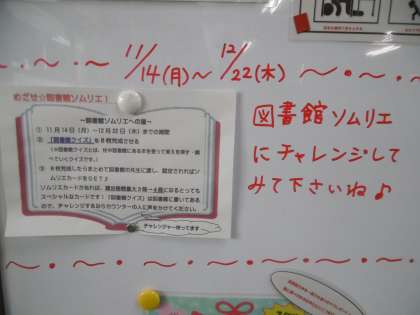 11/14(月)～12/22(木)
めざせ☆図書館ソムリエ！
～図書館ソムリエへの道～
① 11月14日（月）～12月22日（木）までの期間
② 「図書館クイズ」を8枚完成させる
③ 8枚完成したらまとめて図書館の先生に渡し、認定されればソ
ムリエカードをGET♪
ソムリエカードがあれば、貸出冊数最大2冊→4冊になるとっても
スペシャルなカードです！「図書館クイズ」は図書館に置いてある
ので、チャレンジするならカウンターの人に声をかけてください。
チャレンジャー待ってます
図書館ソムリエ
にチャレンジして
みて下さいね♪